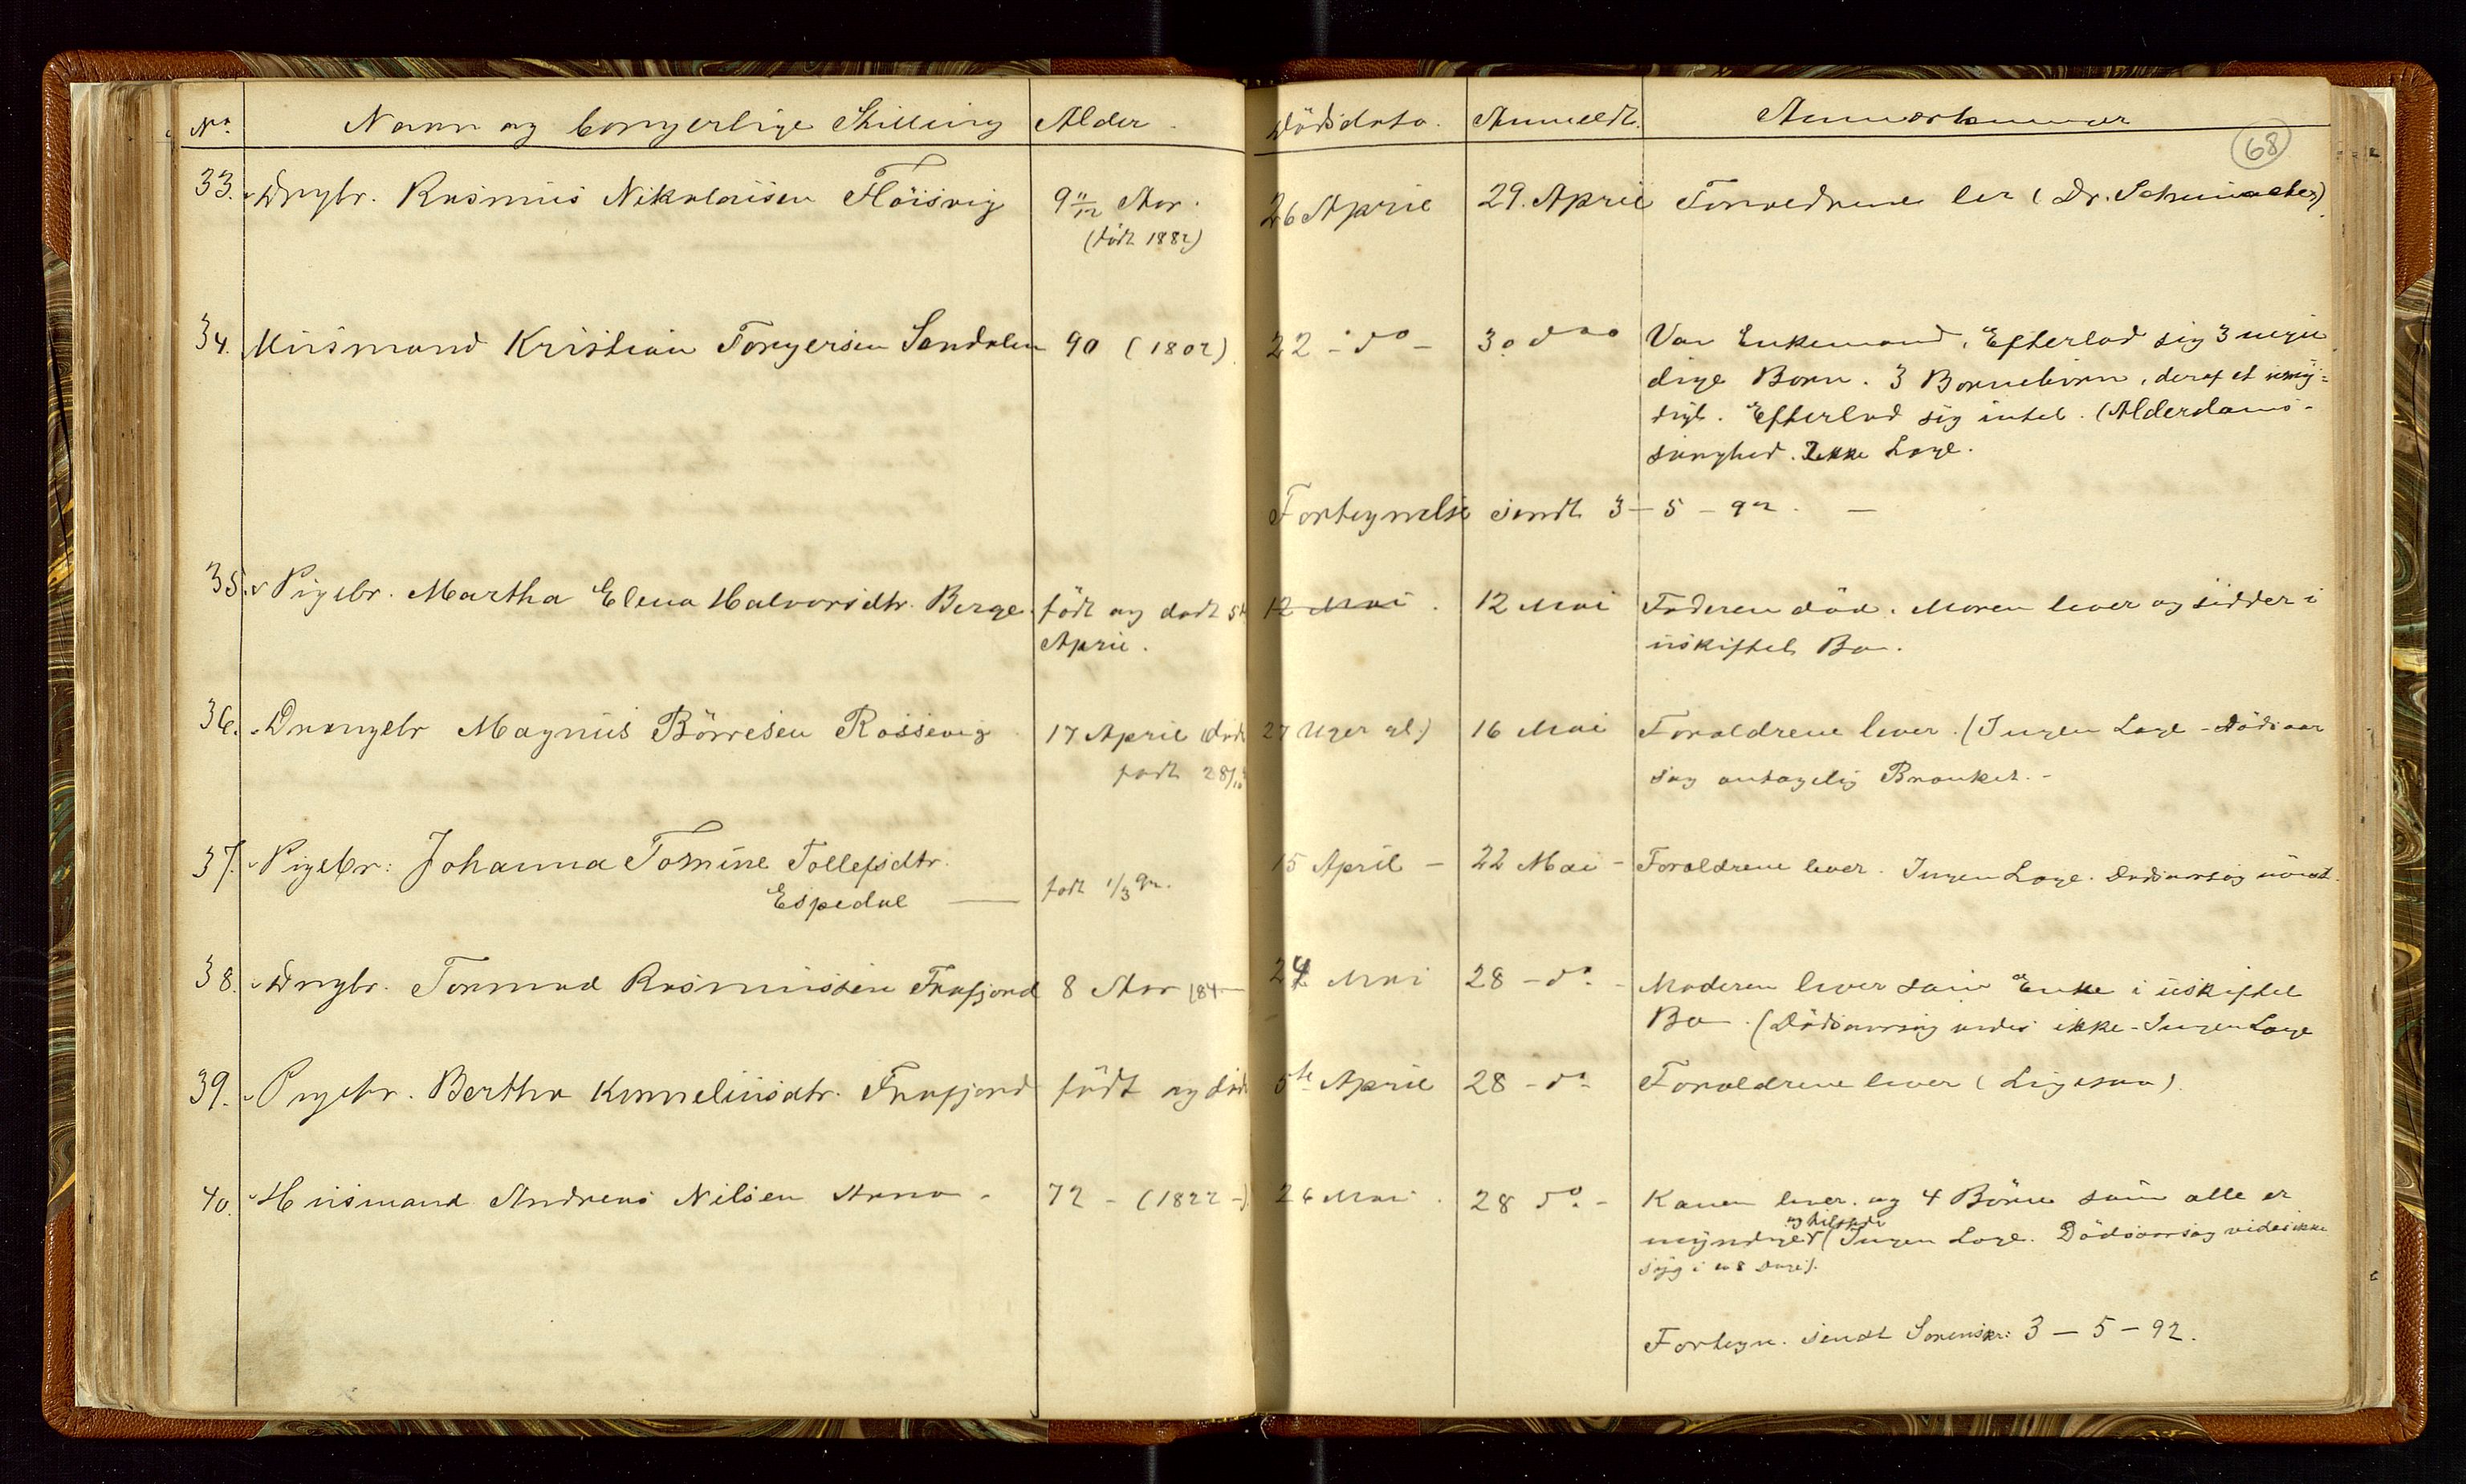 No. Navn og borgerlige Stilling Alder. Dödsdato. Anmeldt. Anmærkninger
68
33. Drgbr. Rasmus Nikolaisen Flöisvig 9 11/12 Aar. 26 April 29. April Forældrene lever (Dr. Schumacher)
(födt 1882)
34. Husmand Kristian Torgersen Sandalen 90 (1802) 22 - do - 30 do Var Enkemand. Efterlod sig 3 myn
dige Born. 3 Bornebörn, deraf et umyn=
digt. Efterlod sig intet. (Alderdoms-
svaghed. Ikke Læge.
Fortegnelse sendt 3 - 5 - 92. —
35. Pigebr. Martha Elena Halvorsdtr. Berge. födt og dodt 5te 12 Mai. 12 Mai Faderen död. Moren lever og sidder i
April. uskiftet Bo.
36. Drengebr Magnus Börresen Rossevig 17 April (död 27 Uger gl.) 16 Mai Foraldrene lever. (Ingen Læge - Dödsaar
fodt 28/10 sag antagelig Bronket. -
37. Pigebr: Johanna Tomine Tollefsdtr. 15 April - 22 Mai - Foraldrene lever. Ingen Læge. Dodsaarsag
Espedal — fodt 1/3 92.
38. Drgbr. Tormod Rasmussen Frafjord 8 Aar 184— 24 Mai 28 - do. - Moderen lever som Enke i uskiftet
Bo. (Dödsaarsag vides ikke - Ingen Læge
39. Pigebr. Bertha Korneliusdtr. Frafjord födt og död 5te April 28 - do. Foraldrene lever (Ligesaa).
40. Husmand Andreas Nilsen 72 - (1822 -) 26 Mai. 28 do. - Konen lever. og 4 Börn som alle er
og
myndige (Ingen Læge. Dödsaarsag vides ikke
syg i 8 Dage).
Fortegn. sendt Sorenskr: 3 - 5 - 92.